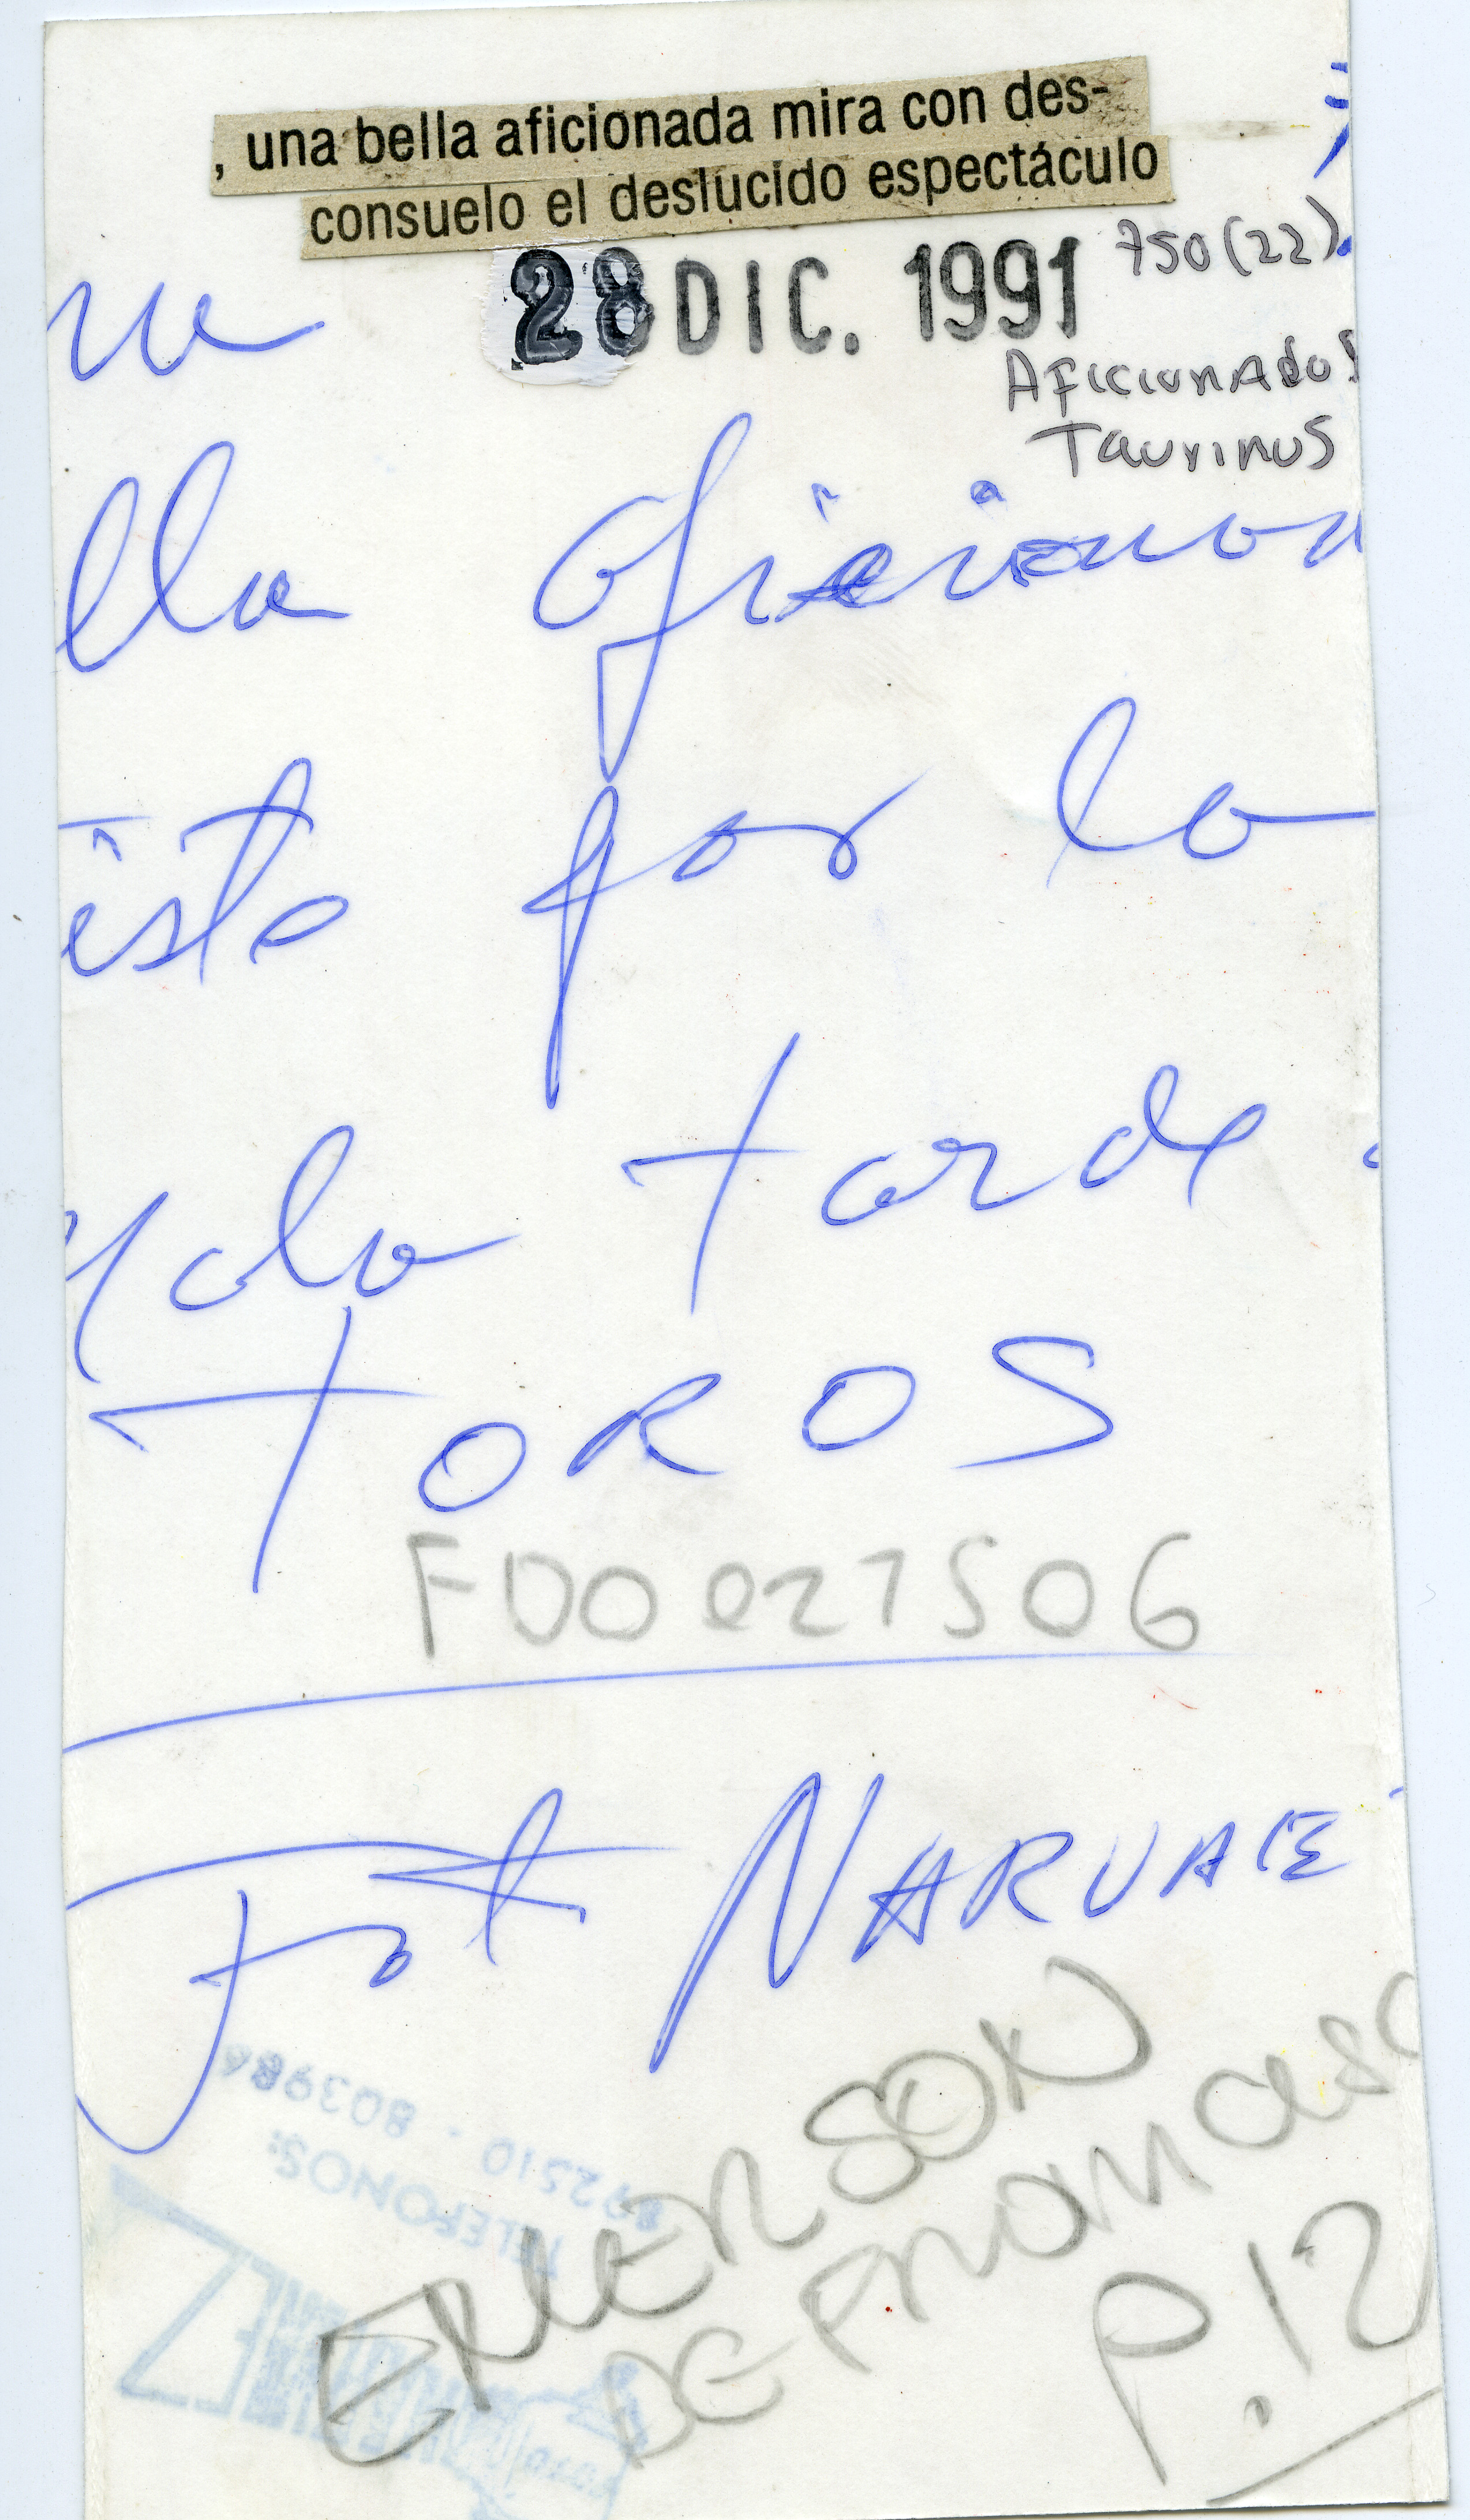 , una bella aficionada mira con des-
consuelo el deslucido espectáculo
28 DIC. 1991
750 (22)
AFICIONADOS
TAURINOS
na
lla aficionad
esto por la
mala tarde
TOROS
F000027506
Fot NARVAE
TELEFONOS:
EMERSON
DE FROMASO
P. 12